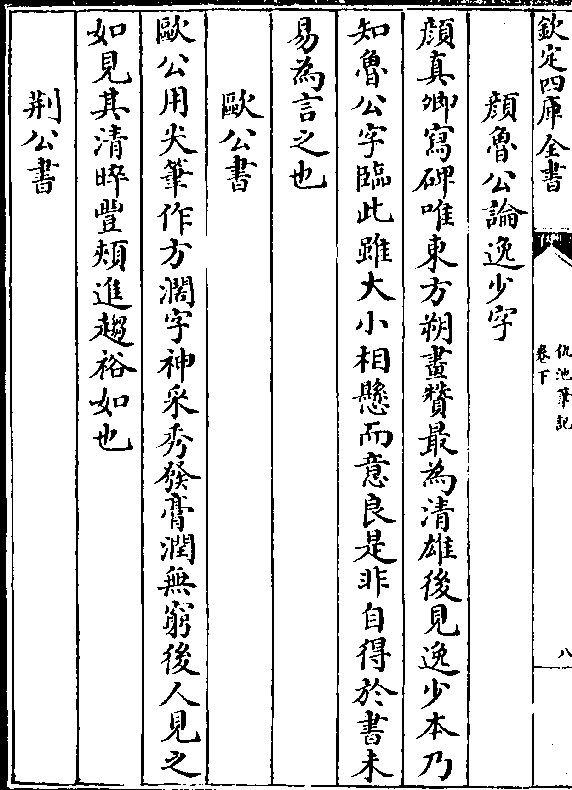 欽定四庫全書
仇池筆記
卷下
八
顔魯公論逸少字
顔真卿寫碑唯東方朔畫贊最為清雄後見逸少本乃
知魯公字臨此雖大小相懸而意良是非自得於書未
易為言之也
歐公書
歐公用尖筆作方濶字神采秀發膏潤無窮後人見之
如見其清晬豐頰進趨裕如也
荆公書